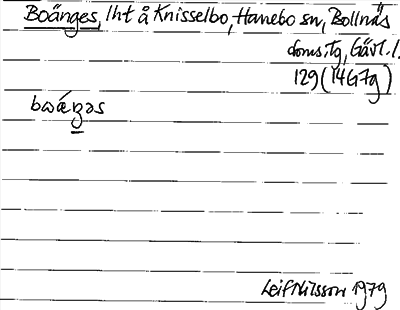 Boänges, lht å Knisselbo, Hanebo sn, Bollnäs
doms.tg, Gävl. l.
129 (14G7g)
bωǽŋəs
Leif Nilsson 1979